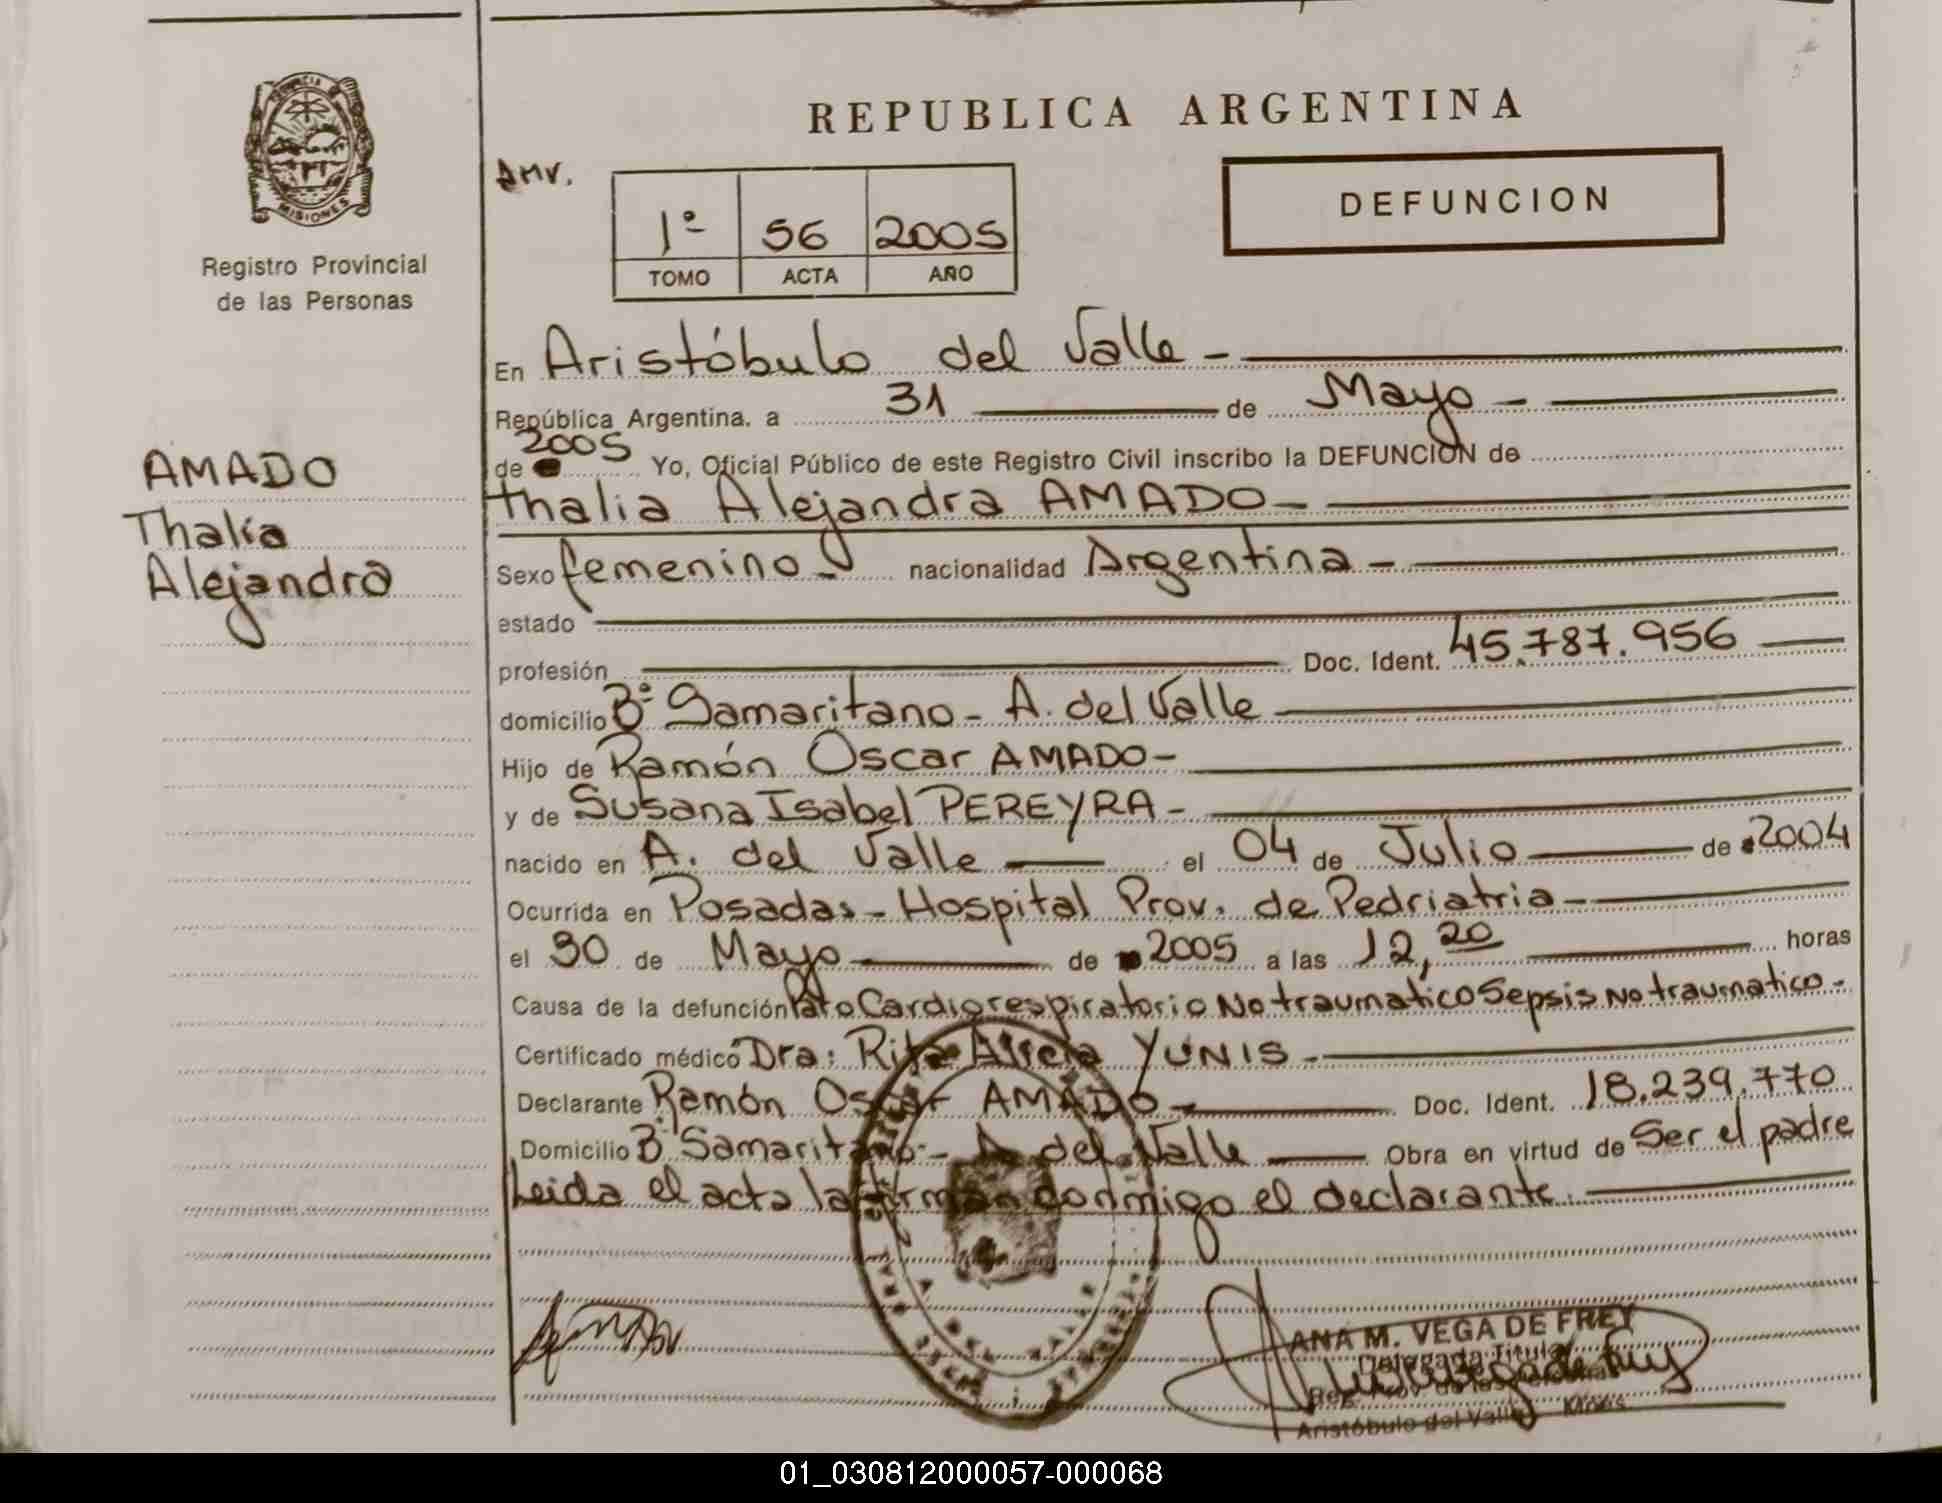 REPUBLICA ARGENTINA
PROVINCIA
MISIONES
Registro Provincial
de las Personas
AMV.
1º 56 2005
TOMO ACTA AÑO
DEFUNCION
AMADO
Thalía
Alejandra
En Aristóbulo del Valle -
República Argentina. a 31 de Mayo -
de 2005 Yo, Oficial Público de este Registro Civil inscribo la DEFUNCION de
thalia Alejandra AMADO -
Sexo femenino - nacionalidad Argentina -
estado
profesión Doc. Ident. 45.787.956
domicilio Bº Samaritano - A. del Valle
Hijo de Ramón Oscar AMADO -
y de Susana Isabel PEREYRA -
nacido en A. del Valle el 04 de Julio de 2004
Ocurrida en Posadas - Hospital Prov. de Pedriatria -
el 30 de Mayo de 2005 a las 12,20 horas
Causa de la defunción Paro Cardiorespiratorio No traumatico Sepsis No traumatico -
Certificado médico Dra: Rita Alicia YUNIS -
Declarante Ramón Oscar AMADO - Doc. Ident. 18.239.770
Domicilio Bº Samaritano - A del Valle Obra en virtud de Ser el padre
Leida el acta la firman conmigo el declarante.
A DEL VALLE
ANA M. VEGA DE FREY
Delegada Titular
Reg. Prov. de las Personas
Aristóbulo del Valle - Mnes
01_030812000057-000068